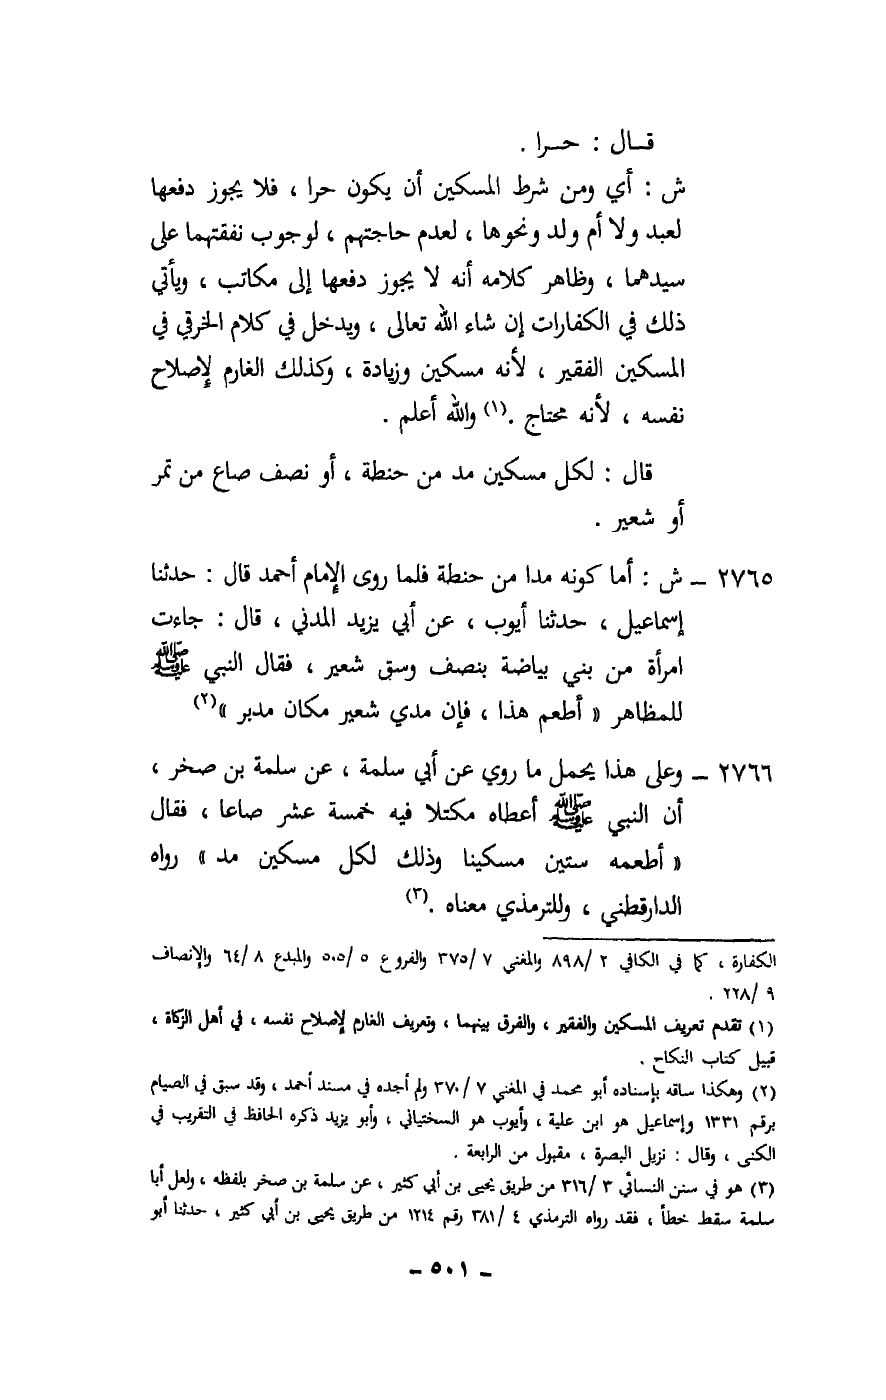 قـال : حـرا .
ش : أي ومن شرط المسكين أن يكون حرا ، فلا يجوز دفعها
لعبد ولا أم ولد ونحوها ، لعدم حاجتهم ، لوجوب نفقتهما على
سيدهما ، وظاهر كلامه أنه لا يجوز دفعها إلى مكاتب ، ويأتي
ذلك في الكفارات إن شاء الله تعالى ، ويدخل في كلام الخرقي في
المسكين الفقير ، لأنه مسكين وزيادة ، وكذلك الغارم لإصلاح
نفسه ، لأنه محتاج .(١) والله أعلم .
قال : لكل مسكين مد من حنطة ، أو نصف صاع من تمر
أو شعير .
٢٧٦٥ – ش : أما كونه مدا من حنطة فلما روى الإمام أحمد قال : حدثنا
إسماعيل ، حدثنا أيوب ، عن أبي يزيد المدني ، قال : جاءت
امرأة من بني بياضة بنصف وسق شعير ، فقال النبي ﷺ
للمظاهر « أطعم هذا ، فإن مدي شعير مكان مدبر »(٢)
٢٧٦٦ – وعلى هذا يحمل ما روي عن أبي سلمة ، عن سلمة بن صخر ،
أن النبي ﷺ أعطاه مكتلا فيه خمسة عشر صاعا ، فقال
« أطعمه ستين مسكينا وذلك لكل مسكين مد » رواه
الدارقطني ، وللترمذي معناه .(٣)
الكفارة ، كما في الكافي ٢ /٨٩٨ والمغني ٧ /٣٧٥ والفروع ٥ /٥٠٥ والمبدع ٨ /٦٤ والإنصاف
٩ /٢٢٨ .
(١) تقدم تعريف المسكين والفقير ، والفرق بينهما ، وتعريف الغارم لإصلاح نفسه ، في أهل الزكاة ،
قبيل كتاب النكاح .
(٢) وهكذا ساقه بإسناده أبو محمد في المغني ٧ /٣٧٠ ولم أجده في مسند أحمد ، وقد سبق في الصيام
برقم ١٣٣١ وإسماعيل هو ابن علية ، وأيوب هو السختياني ، وأبو يزيد ذكره الحافظ في التقريب في
الكنى ، وقال : نزيل البصرة ، مقبول من الرابعة .
(٣) هو في سنن النسائي ٣ /٣١٦ من طريق يحيى بن أبي كثير ، عن سلمة بن صخر بلفظه ، ولعل أبا
سلمة سقط خطأ ، فقد رواه الترمذي ٤ /٣٨١ رقم ١٢١٤ من طريق يحيى بن أبي كثير ، حدثنا أبو
– ٥٠١ –